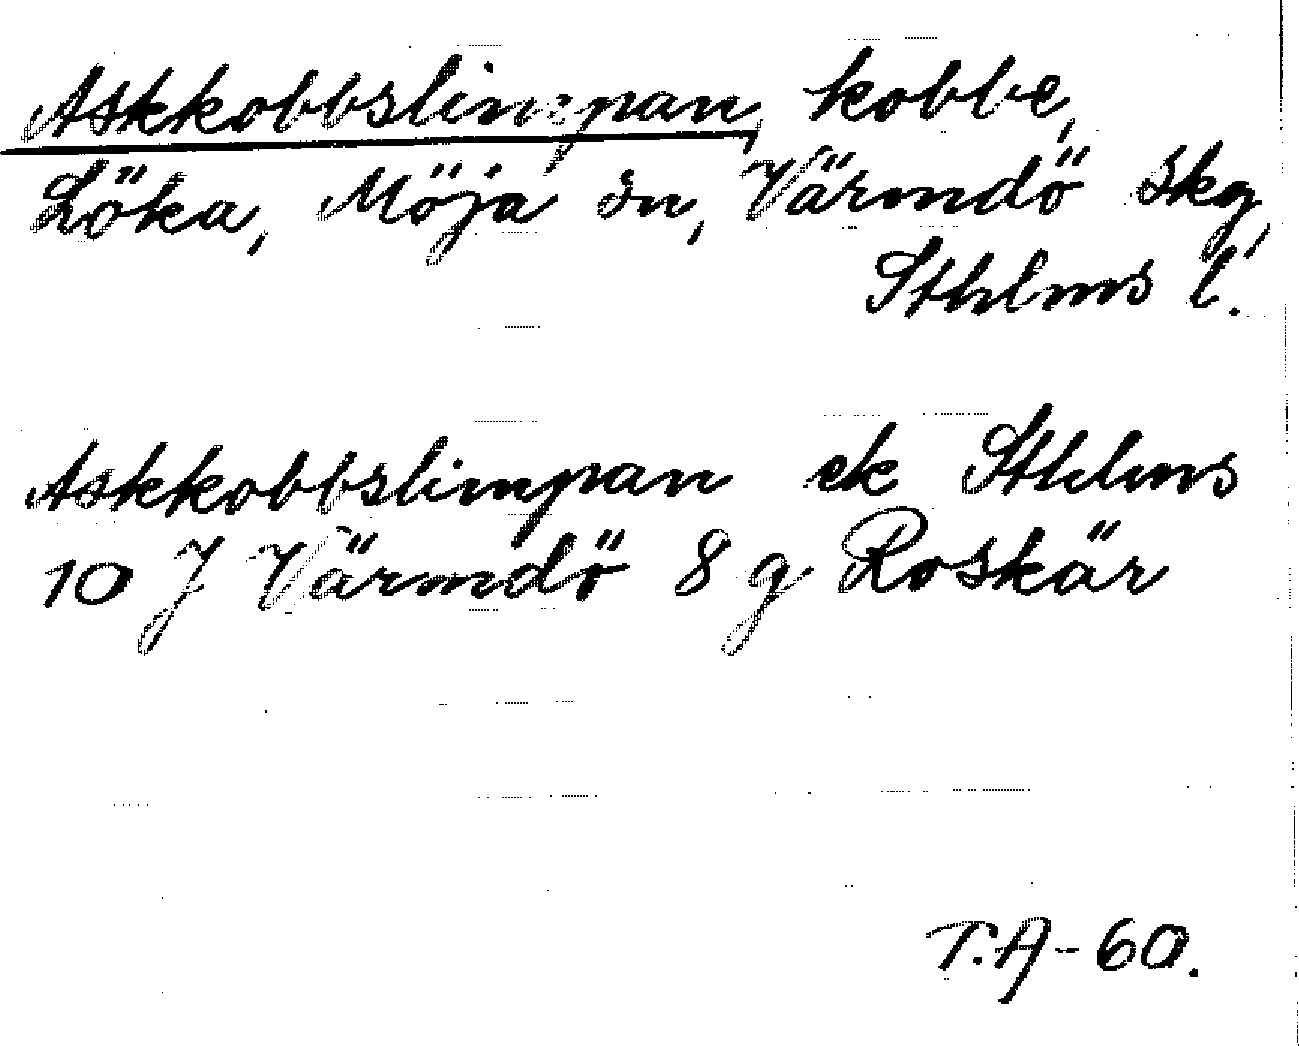 Askkobbslimpan, kobbe,
Löka, Möja sn, Värmdö skg,
Sthlms l.
Askkobbslimpan ek Sthlms
10 J Värmdö 8 g Roskär
T.A-60.